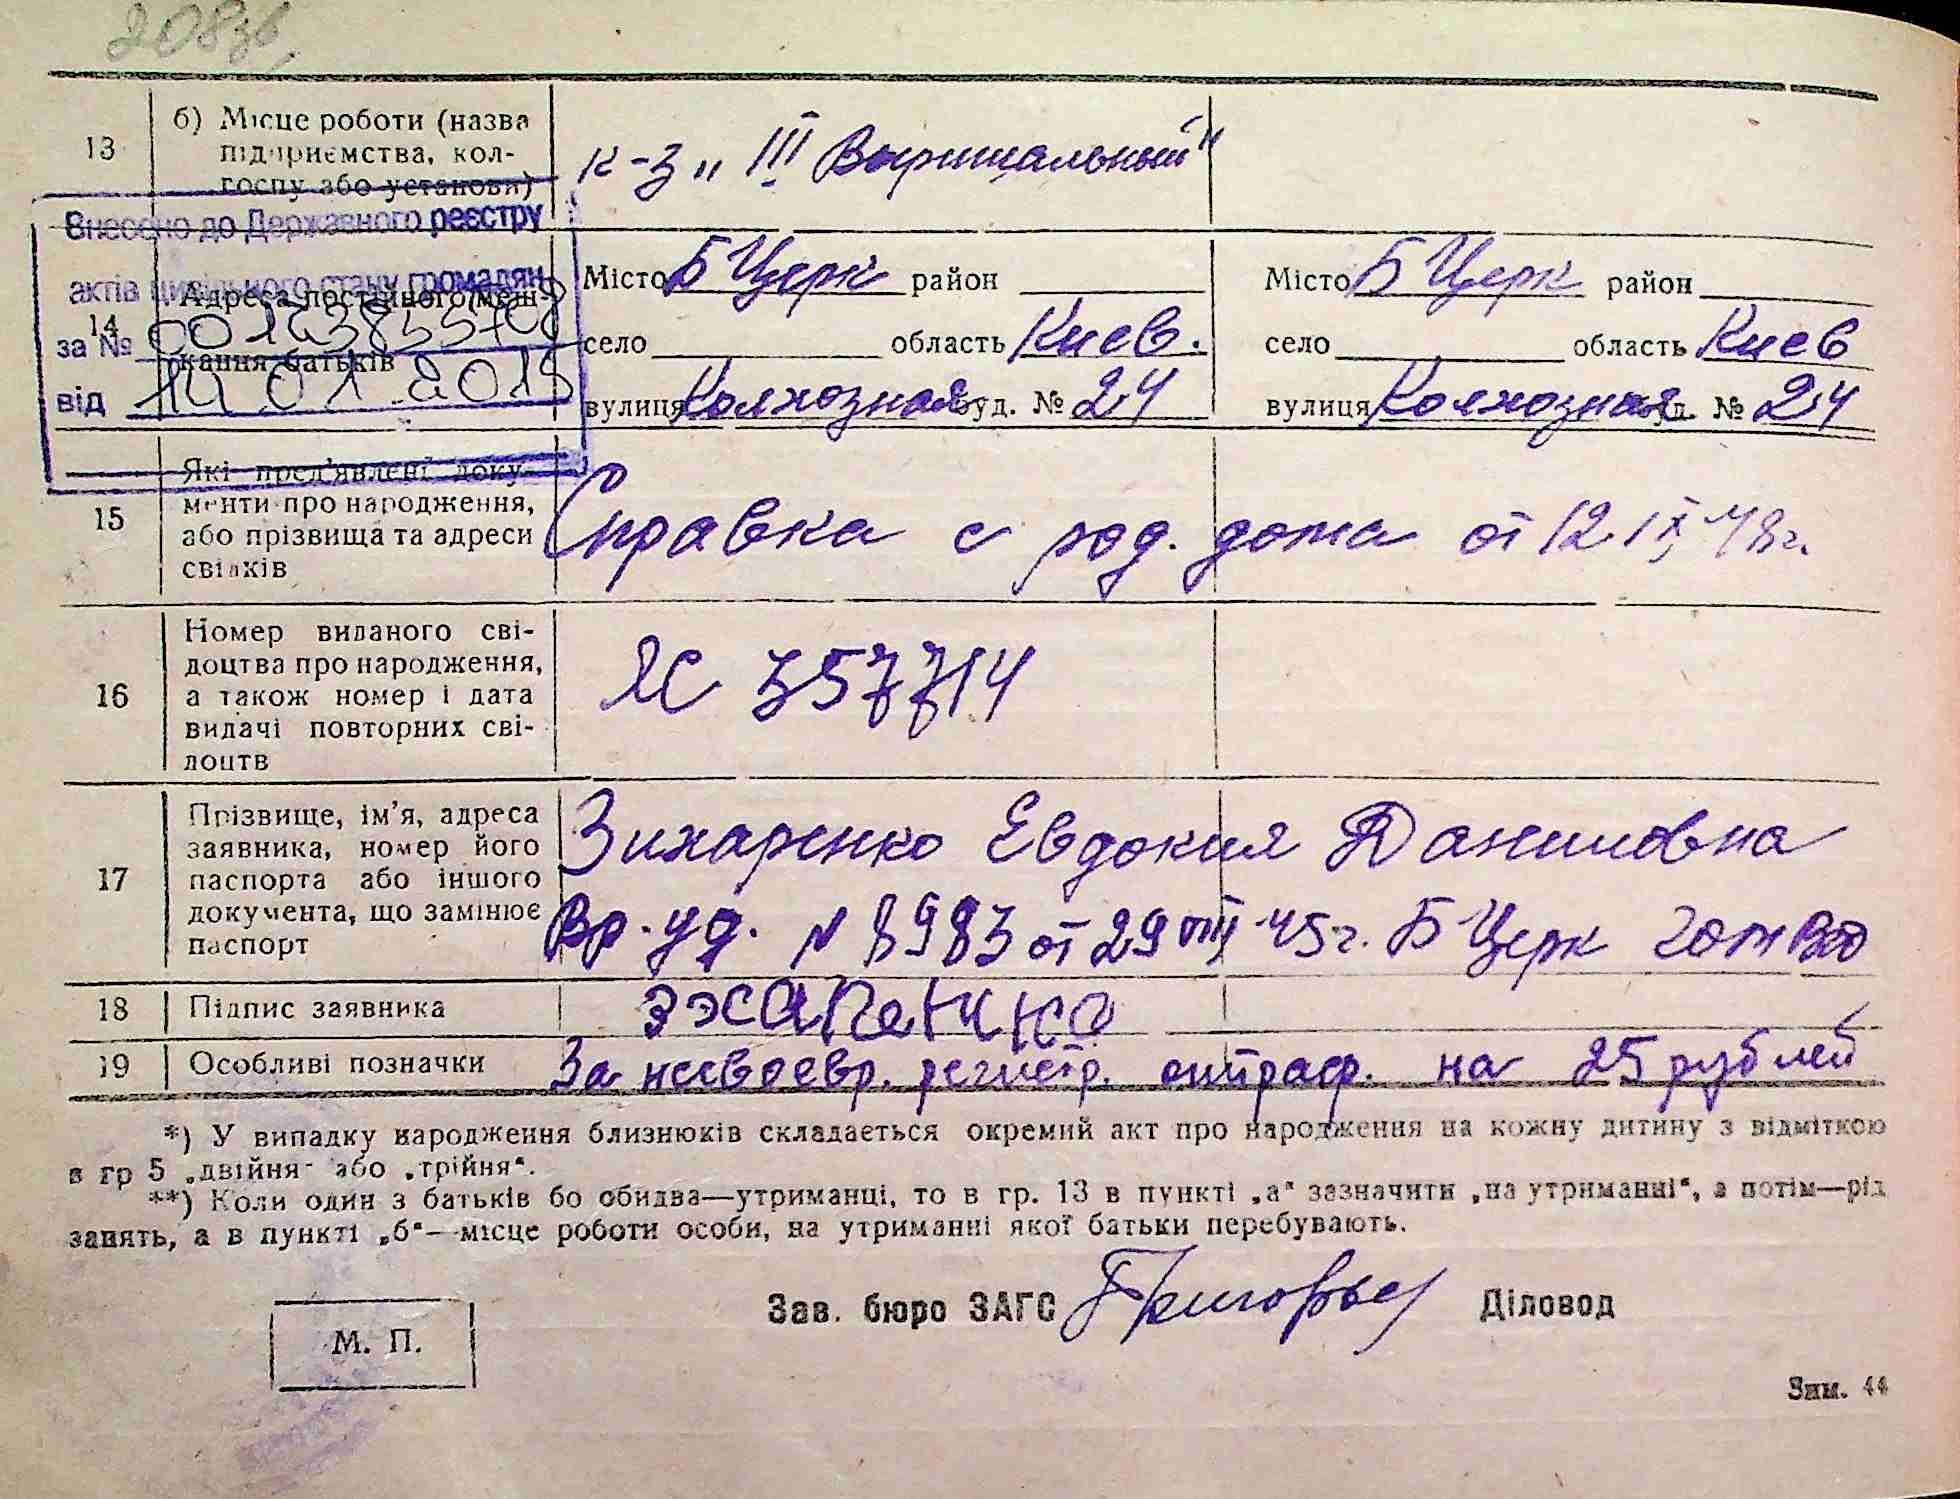 208 зв.
13 б) Місце роботи (назва підприємства, колгоспу або установи) к-з „III Выришальный"
Внесено до Державного реєстру
актів цивільного стану громадян
за №
від 14 01 2015
14 Адреса постійного мешкання батьків
Місто Б Церк район Місто Б Церк район
село область Киев. село область Киев
вулиця Колхозная буд. № 24 вулиця Колхозная буд. № 24
15 Які пред'явлені документи про народження,
або прізвища та адреси
свідків
Справка с род. дома от 12 IX 48 г.
16 Номер виданого свідоцтва про народження,
а також номер і дата
видачі повторних свідоцтв
ЯС 357714
17 Прізвище, ім'я, адреса
заявника, номер його
паспорта або іншого
документа, що замінює
паспорт
Евдокия Даниловна
Вр. уд. № 8983 от 29 VIII 45 г. Б Церк
18 Підпис заявника
19 Особливі позначки За несвоевр. регистр. оштраф. на 25 рублей
*) У випадку народження близнюків складається окремий акт про народження на кожну дитину з відміткою
в гр 5 „двійня" або „трійня".
**) Коли один з батьків бо обидва—утриманці, то в гр. 13 в пункті „а" зазначити „на утриманні", а потім—рід
занять, а в пункті „б"—місце роботи особи, на утриманні якої батьки перебувають.
Зав. бюро ЗАГС Діловод
М. П.
Зам. 44